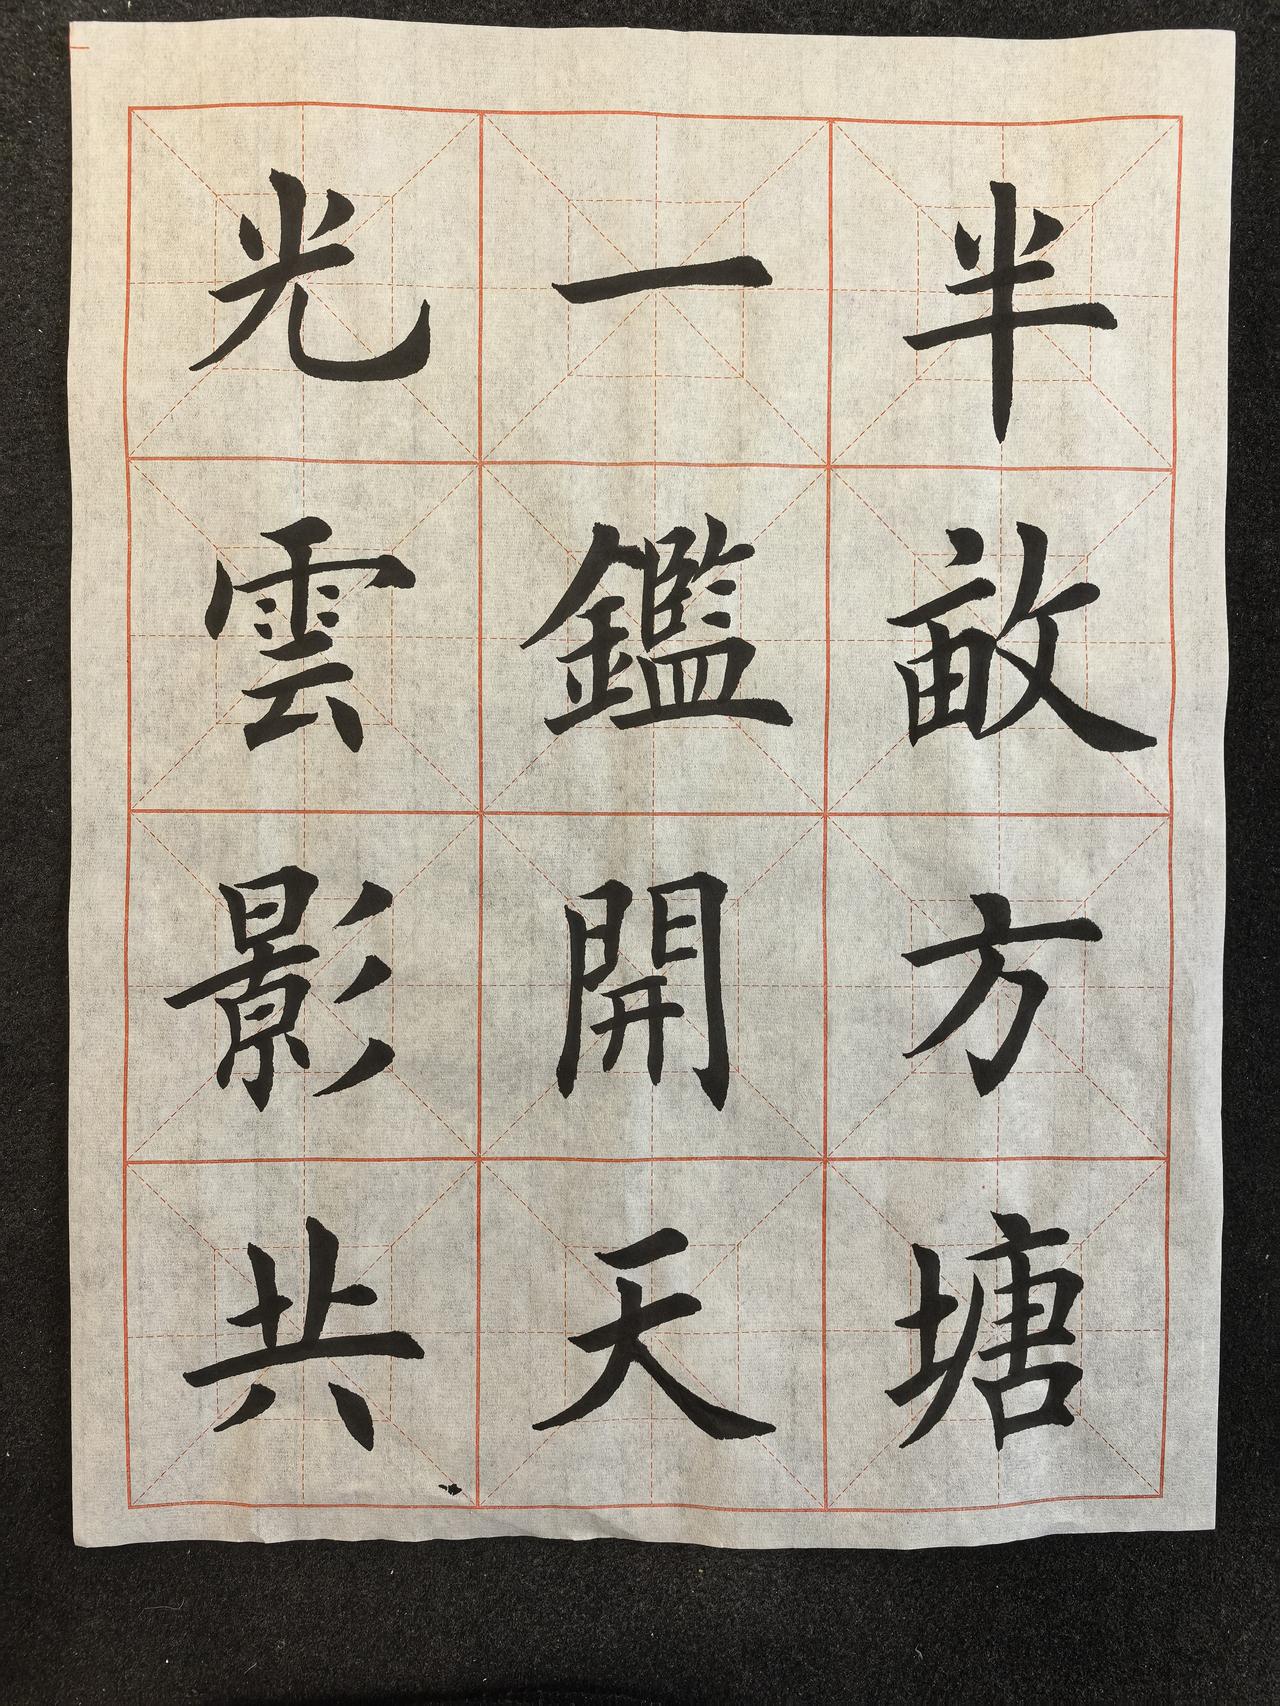 半畝方塘
一鑑開天
光雲影共